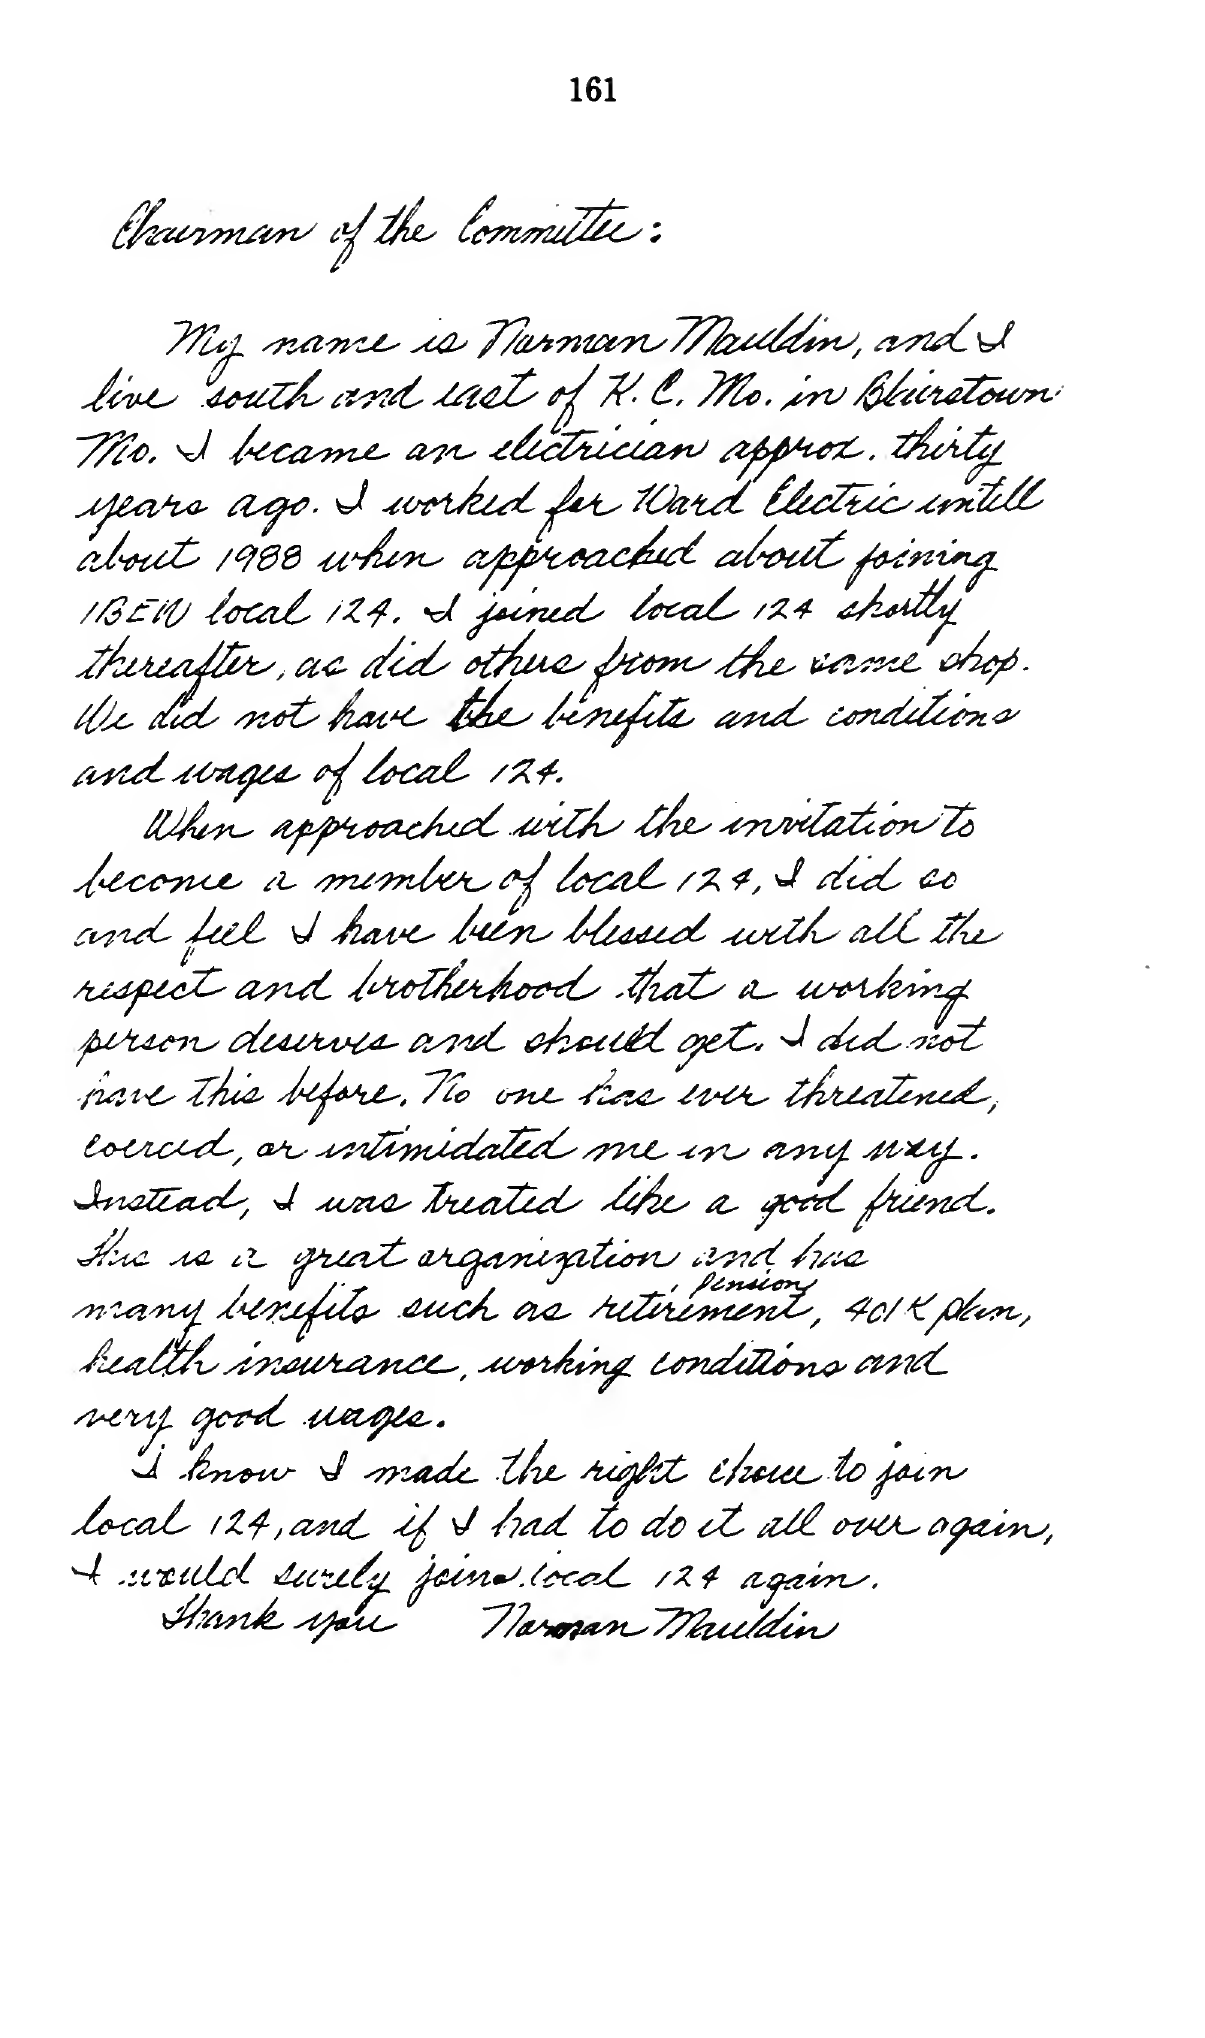 161
Chairman of the Committee:
My name is Norman Mauldin, and I
live south and east of K.C. Mo. in Blairstown
Mo. I became an electrician approx. thirty
years ago. I worked for Ward Electric untill
about 1988 when approached about joining
IBEW local 124. I joined local 124 shortly
thereafter, as did others from the same shop.
We did not have the benefits and conditions
and wages of local 124.
When approached with the invitation to
become a member of local 124, I did so
and feel I have been blessed with all the
respect and brotherhood that a working
person deserves and should get. I did not
have this before. No one has ever threatened,
coerced, or intimidated me in any way.
Instead, I was treated like a good friend.
This is a great organization and has
pension
many benefits such as retirement, 401K plan,
health insurance, working conditions and
very good wages.
I know I made the right choice to join
local 124, and if I had to do it all over again,
I would surely join local 124 again.
Thank you Norman Mauldin